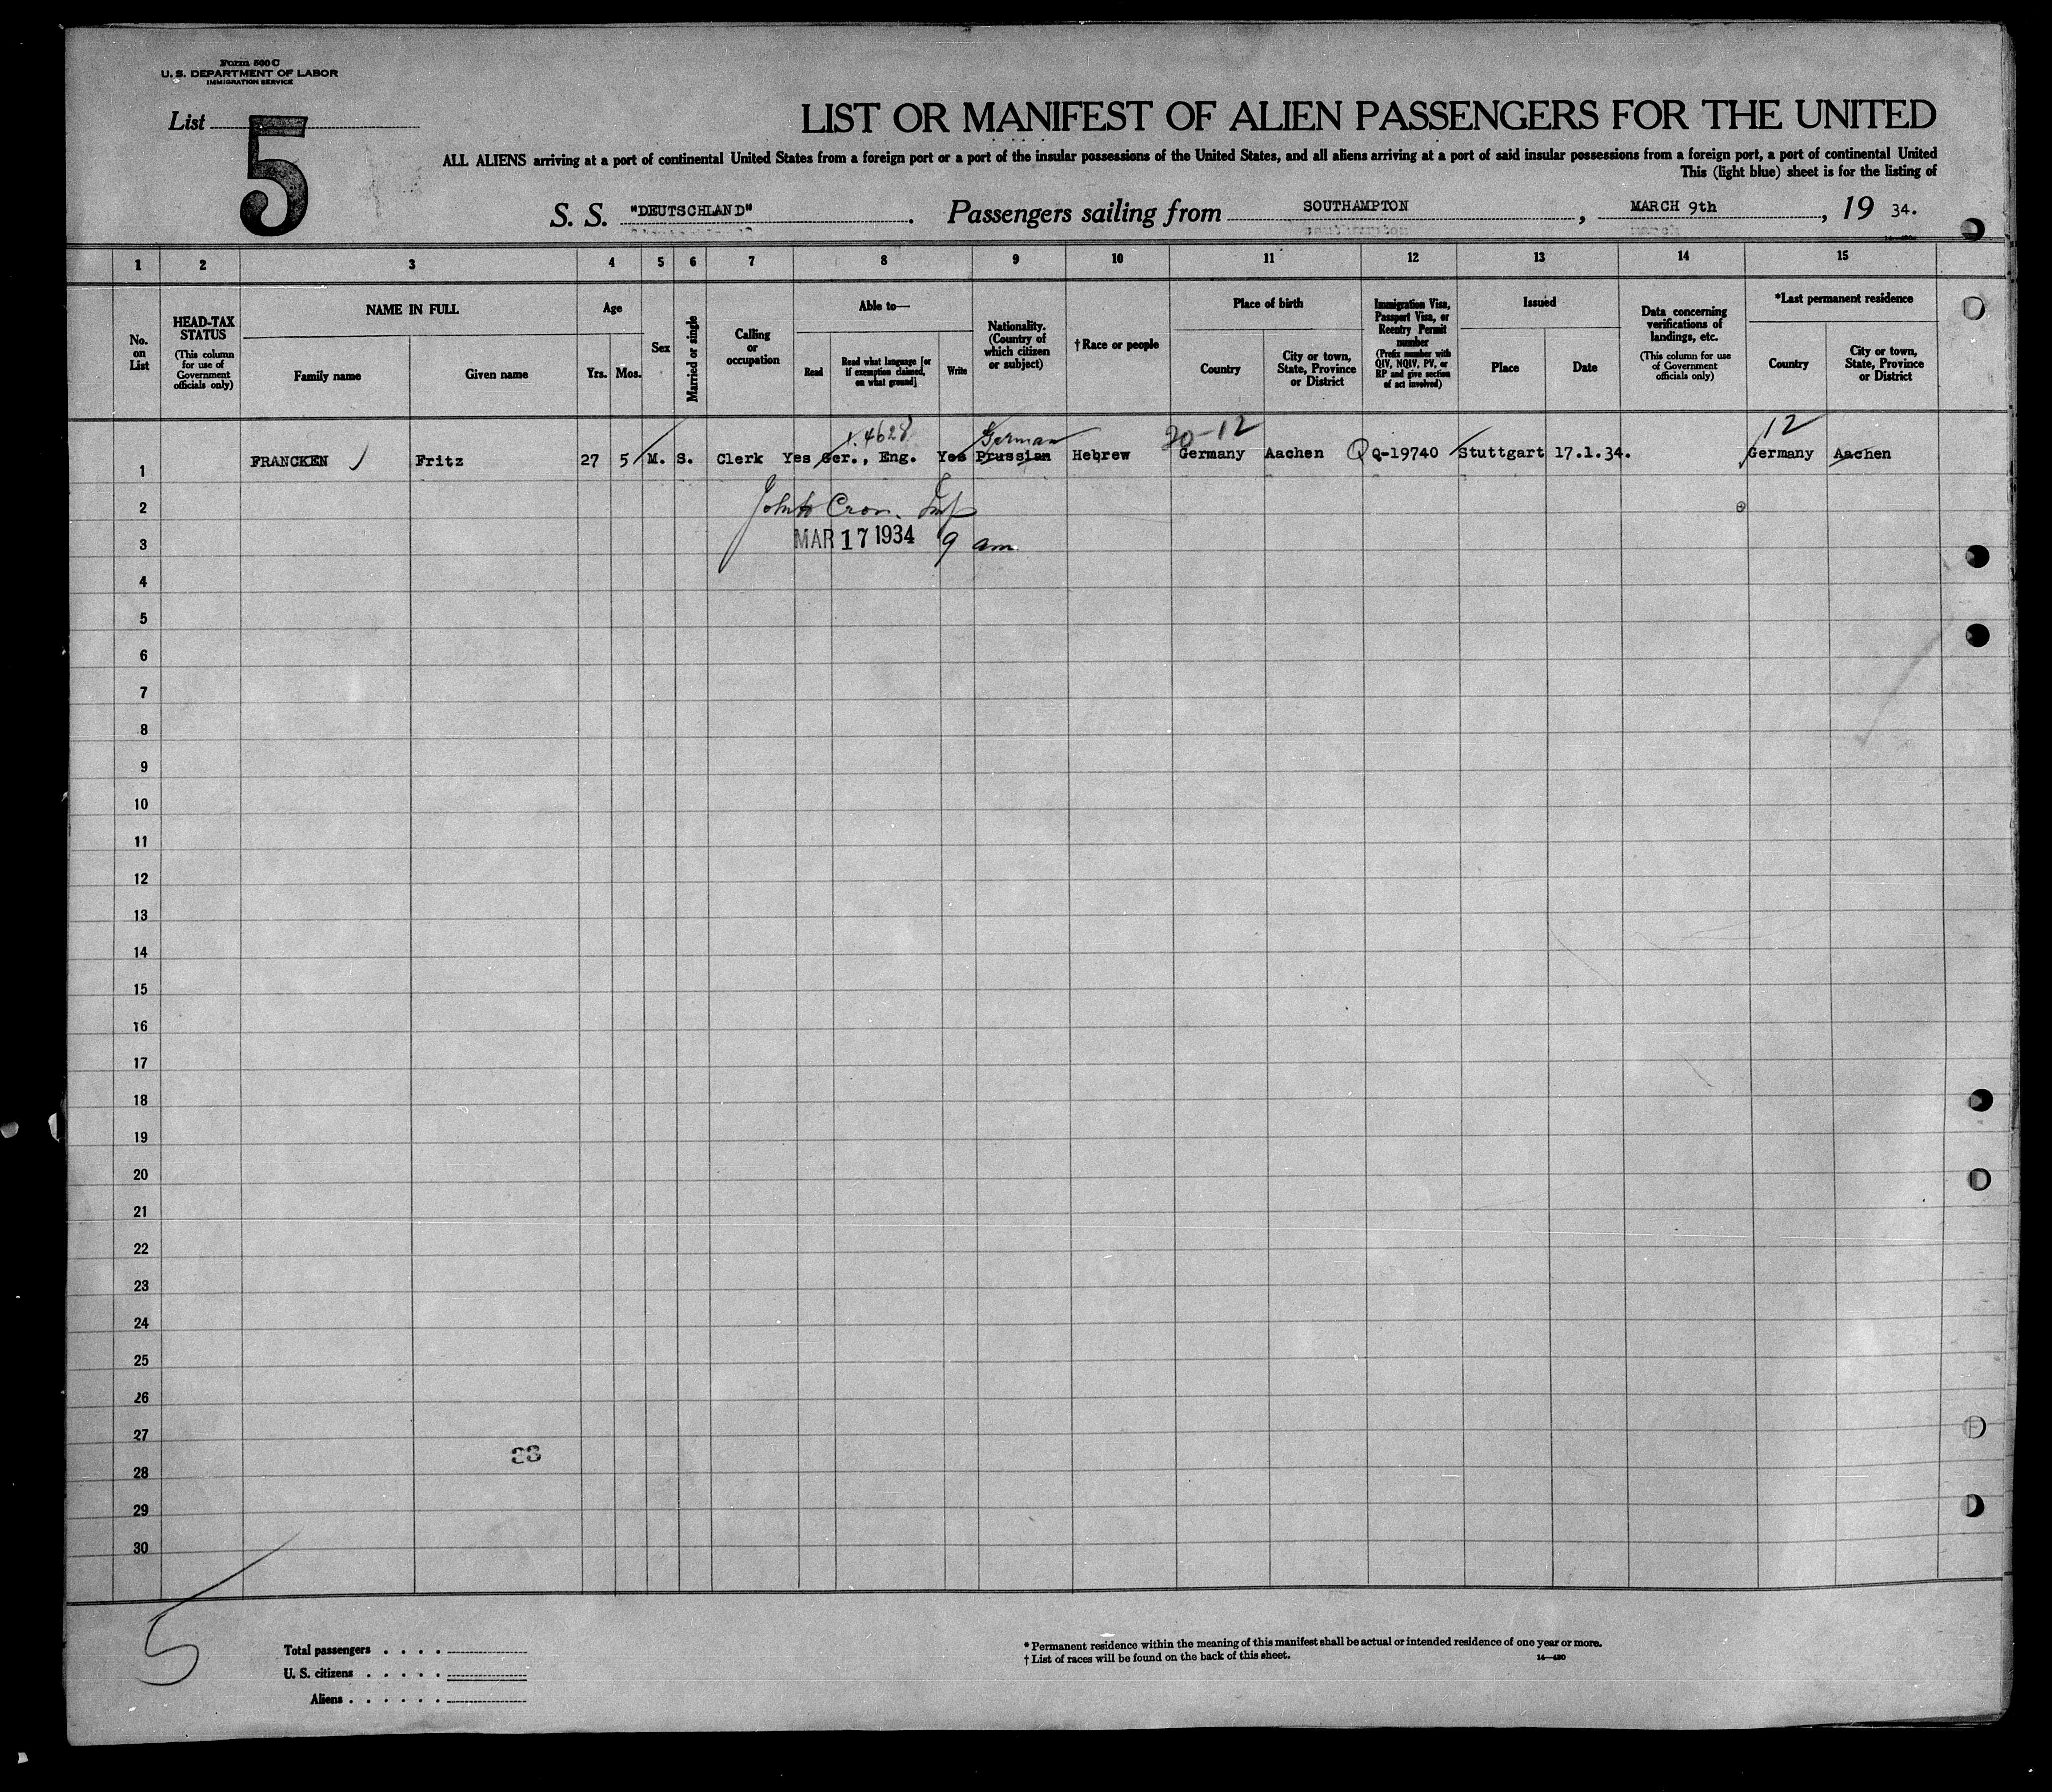 Form 500 C
U. S. DEPARTMENT OF LABOR
IMMIGRATION SERVICE
List 5
LIST OR MANIFEST OF ALIEN PASSENGERS FOR THE UNITED
ALL ALIENS arriving at a port of continental United States from a foreign port or a port of the insular possessions of the United States, and all aliens arriving at a port of said insular possessions from a foreign port, a port of continental United
This (light blue) sheet is for the listing of
S. S. "DEUTSCHLAND". Passengers sailing from SOUTHAMPTON, MARCH 9th, 19 34.
1 2 3 4 5 6 7 8 9 10 11 12 13 14 15
No. on List
HEAD-TAX STATUS
(This column for use of Government officials only)
NAME IN FULL
Family name
Given name
Age
Yrs.
Mos.
Sex
Married or single
Calling or occupation
Able to—
Read
Read what language [or if exemption claimed, on what ground]
Write
Nationality. (Country of which citizen or subject)
†Race or people
Place of birth
Country
City or town, State, Province or District
Immigration Visa, Passport Visa, or Reentry Permit number
(Prefix number with QIV, NQIV, PV, or RP and give section of act involved)
Issued
Place
Date
Data concerning verifications of landings, etc.
(This column for use of Government officials only)
*Last permanent residence
Country
City or town, State, Province or District
4628 German 20-12 12
1 FRANCKEN Fritz 27 5 M. S. Clerk Yes Ger., Eng. Yes Prussian Hebrew Germany Aachen Q Q-19740 Stuttgart 17.1.34. Germany Aachen
2 John Cron. Insp
3 MAR 17 1934 9 am.
4
5
6
7
8
9
10
11
12
13
14
15
16
17
18
19
20
21
22
23
24
25
26
27
28
29
30
5
Total passengers . . . .
U. S. citizens . . . . .
Aliens . . . . . .
* Permanent residence within the meaning of this manifest shall be actual or intended residence of one year or more.
† List of races will be found on the back of this sheet.
14—430